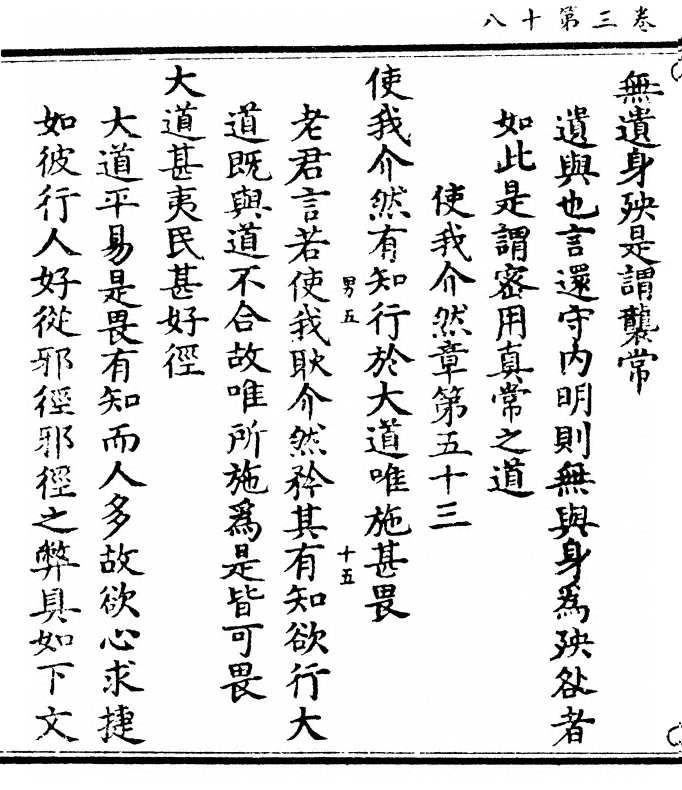 卷三第十八
無遺身殃是謂襲常
遺與也言還守內明則無與身爲殃咎者
如此是謂密用真常之道
使我介然章第五十三
使我介然有知行於大道唯施甚畏
男五
十五
老君言若使我耿介然矜其有知欲行大
道旣與道不合故唯所施爲是皆可畏
大道甚夷民甚好徑
大道平易是畏有知而人多故欲心求捷
如彼行人好從邪徑邪徑之弊具如下文